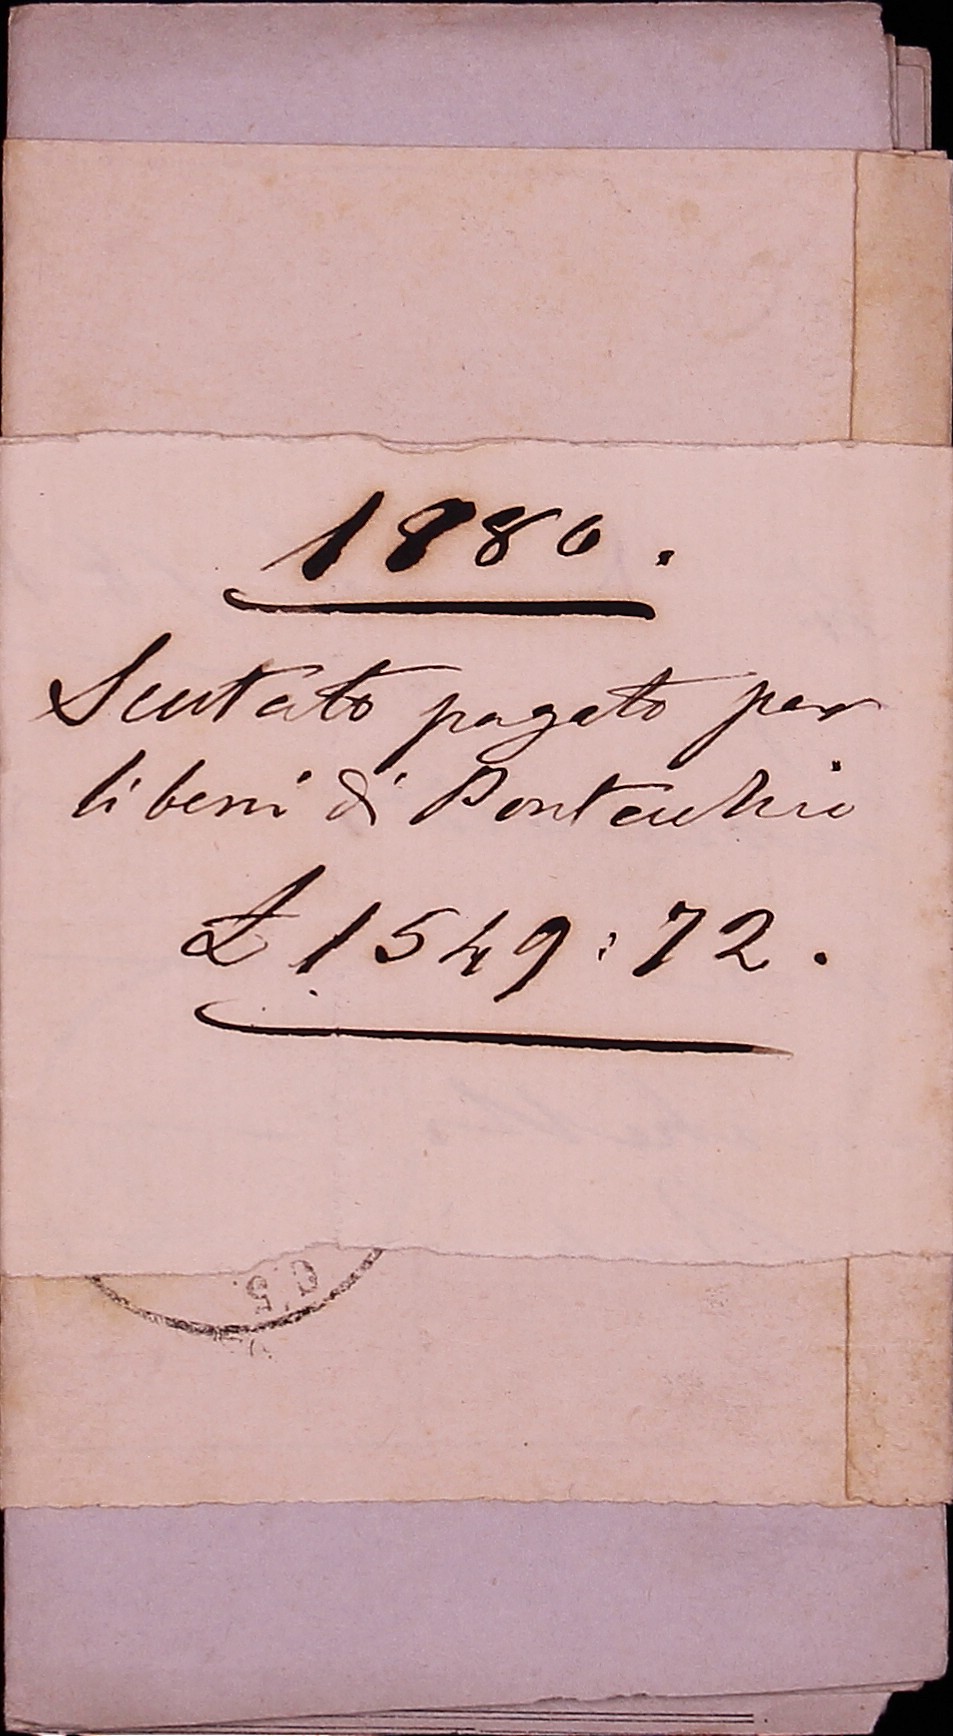 1880.
Scutato pagato per
li beni di Pontecchio
£ 1549:72.